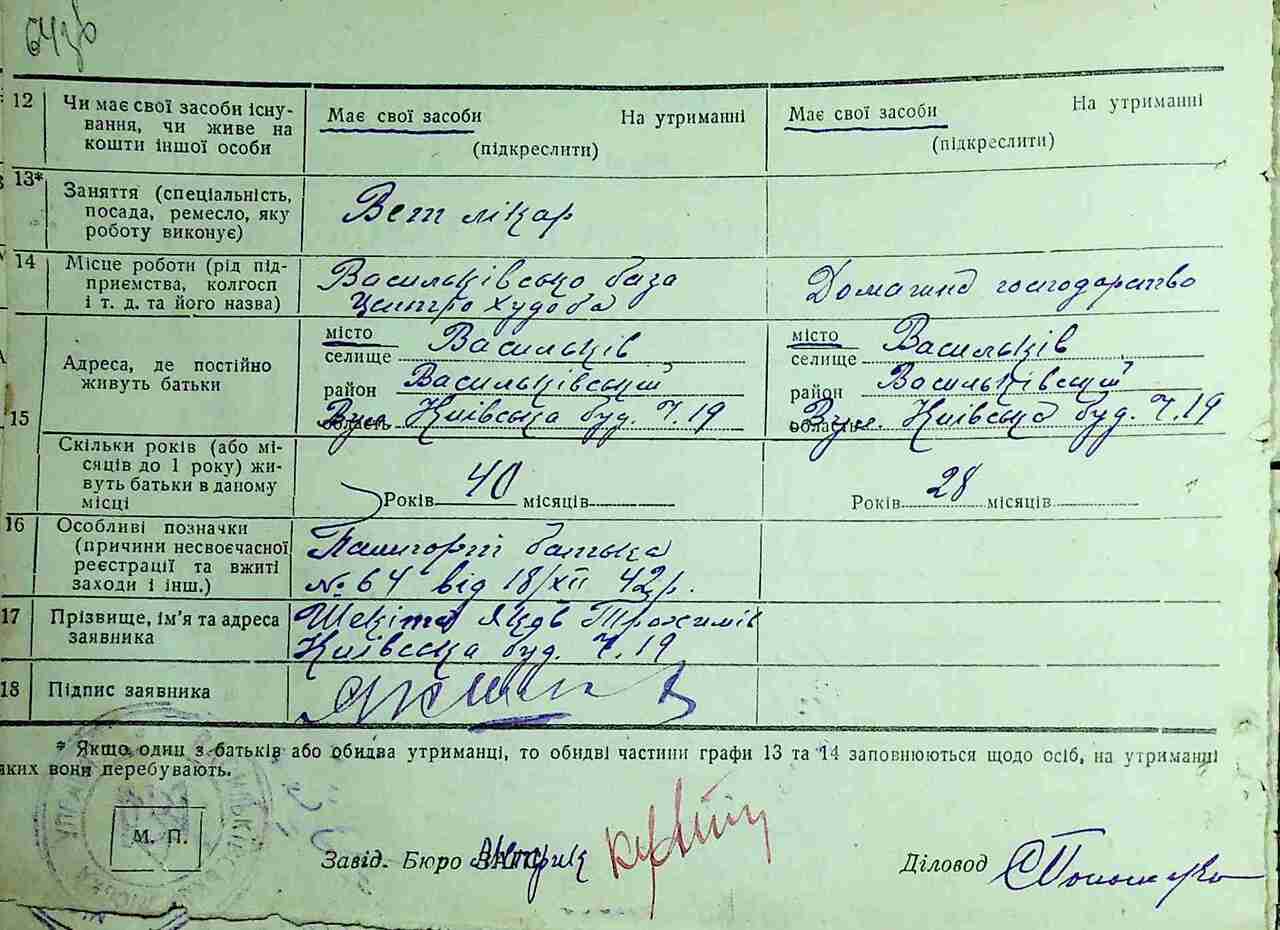 12 Чи має свої засоби існу-
вання, чи живе на
кошти іншої особи
Має свої засоби На утриманні
(підкреслити)
Має свої засоби На утриманні
(підкреслити)
13* Заняття (спеціальність,
посада, ремесло, яку
роботу виконує)
Вет лікар
14 Місце роботи (рід під-
приємства, колгосп
і т. д. та його назва)
Васильківсько база
Центро худоба
Домашнє господарство
15 Адреса, де постійно
живуть батьки
місто Васильків
селище
район Васильківський
область Вул. Київська буд. Ч. 19
місто Васильків
селище
район Васильківський
область Вул. Київська буд. Ч. 19
Скільки років (або мі-
сяців до 1 року) жи-
вуть батьки в даному
місці
Років 40 місяців
Років 28 місяців
16 Особливі позначки
(причини несвоєчасної
реєстрації та вжиті
заходи і інш.)
Пашпорт батька
№ 64 від 18/XII 42р.
17 Прізвище, ім'я та адреса
заявника
Шекіта Яков Трохимів
Київська буд. Ч. 19
18 Підпис заявника
* Якщо один з батьків або обидва утриманці, то обидві частини графи 13 та 14 заповнюються щодо осіб, на утриманні
яких вони перебувають.
М. П.
Завід. Бюро ЗАГС Метрик
Діловод